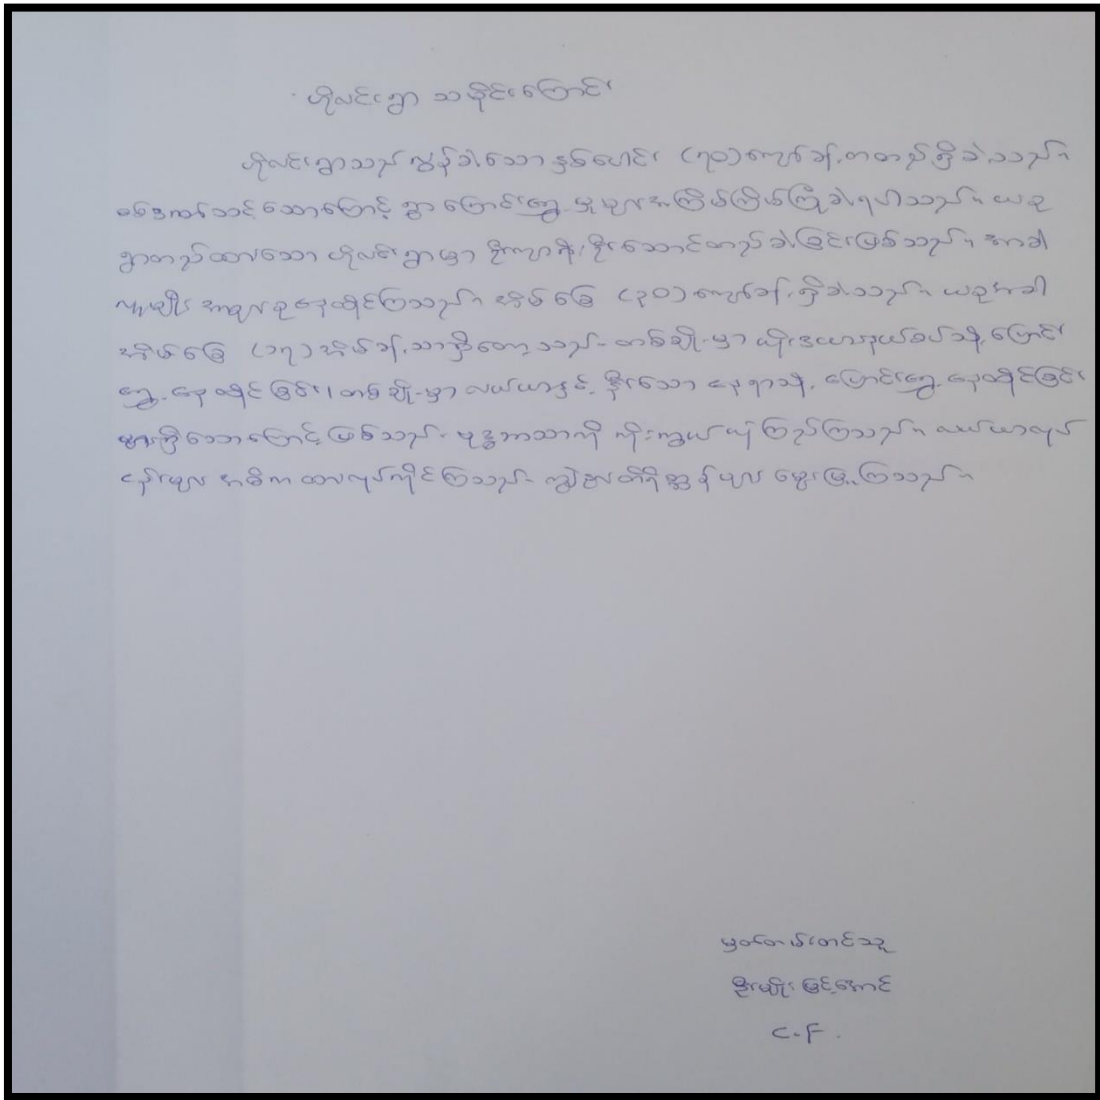 ဟိုလင်းရွာ သမိုင်းကြောင်း
ဟိုလင်းရွာသည် လွန်ခဲ့သော နှစ်ပေါင်း (၇၀) ကျော်ခန့် ကတည်ရှိခဲ့သည်။
စစ်ဒဏ်သင့်သောကြောင့် ရွာ ပြောင်းရွှေ့မှုများ အကြိမ်ကြိမ်ကြုံခဲ့ရပါသည်။ ယခု
ရွာတည်ထားသော ဟိုလင်းရွာမှာ ဦးကျာရိုး ဦးဆောင်တည်ခဲ့ခြင်းဖြစ်သည်။ အာခါ
လူမျိုး အများစုနေထိုင်ကြသည်။ အိမ်ခြေ (၃၀) ကျော်ခန့် ရှိခဲ့သည်။ ယခုအခါ
အိမ်ခြေ (၁၇) အိမ်ခန့်သာရှိတော့သည်။ တစ်ချို့မှာ ယိုးဒယားနယ်စပ်သို့ ပြောင်း
ရွှေ့နေထိုင်ခြင်း၊ တစ်ချို့မှာ လယ်ယာနှင့် နီးသော နေရာသို့ ပြောင်းရွှေ့နေထိုင်ခြင်း
များရှိသောကြောင့် ဖြစ်သည်။ ဗုဒ္ဓဘာသာကို ကိုးကွယ်ယုံကြည်ကြသည်။ လယ်ယာလုပ်
ငန်းများ အဓိကထားလုပ်ကိုင်ကြသည်။ ကျွဲနွားတိရိစ္ဆာန်များ မွေးမြူကြသည်။
မှတ်တမ်းတင်သူ
ဦးမျိုးမြင့်အောင်
C.F.